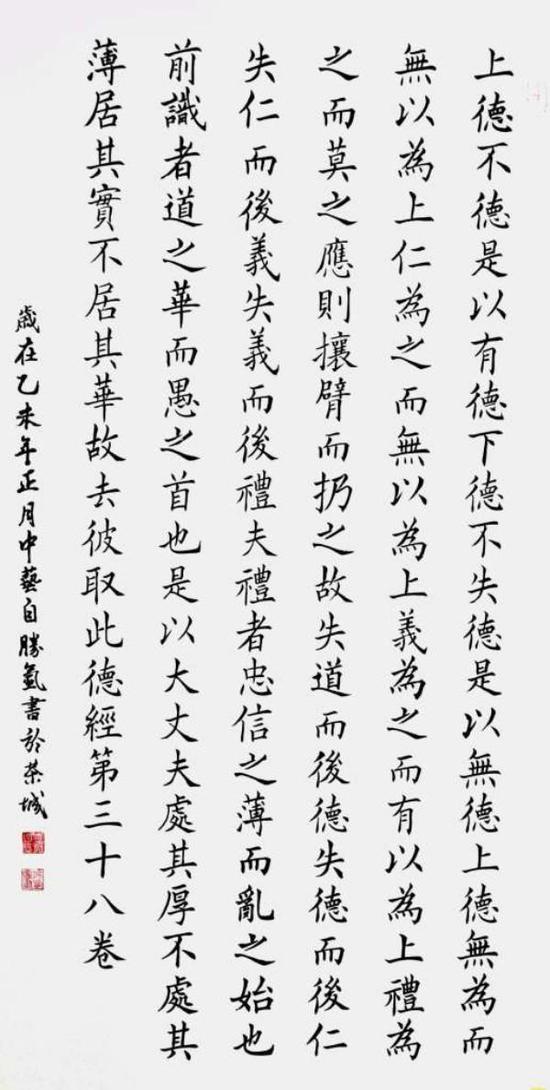 上德不德是以有德下德不失德是以無德上德無為而
無以為上仁為之而無以為上義為之而有以為上禮為
之而莫之應則攘臂而扔之故失道而後德失德而後仁
失仁而後義失義而後禮夫禮者忠信之薄而亂之始也
前識者道之華而愚之首也是以大丈夫處其厚不處其
薄居其實不居其華故去彼取此德經第三十八卷
歲在乙未年正月中藝自勝氣書於茶城